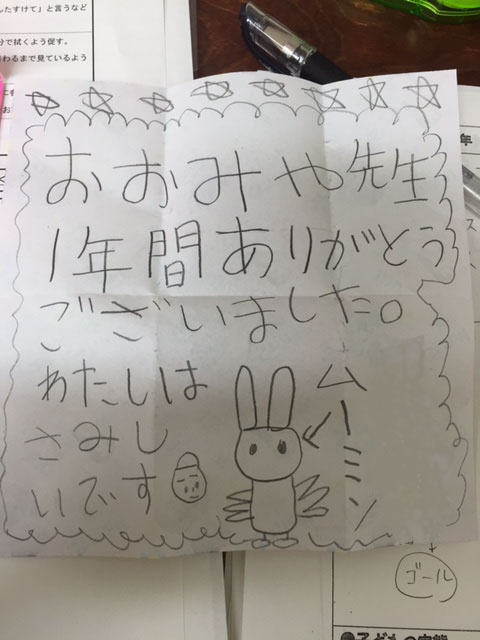 したすけて」と言うなど
分で拭くよう促す。
わるまで見ているよう
おおみや先生
1年間ありがとう
ございました。
わたしは
さみし
いです
ムーミン
ゴール
年